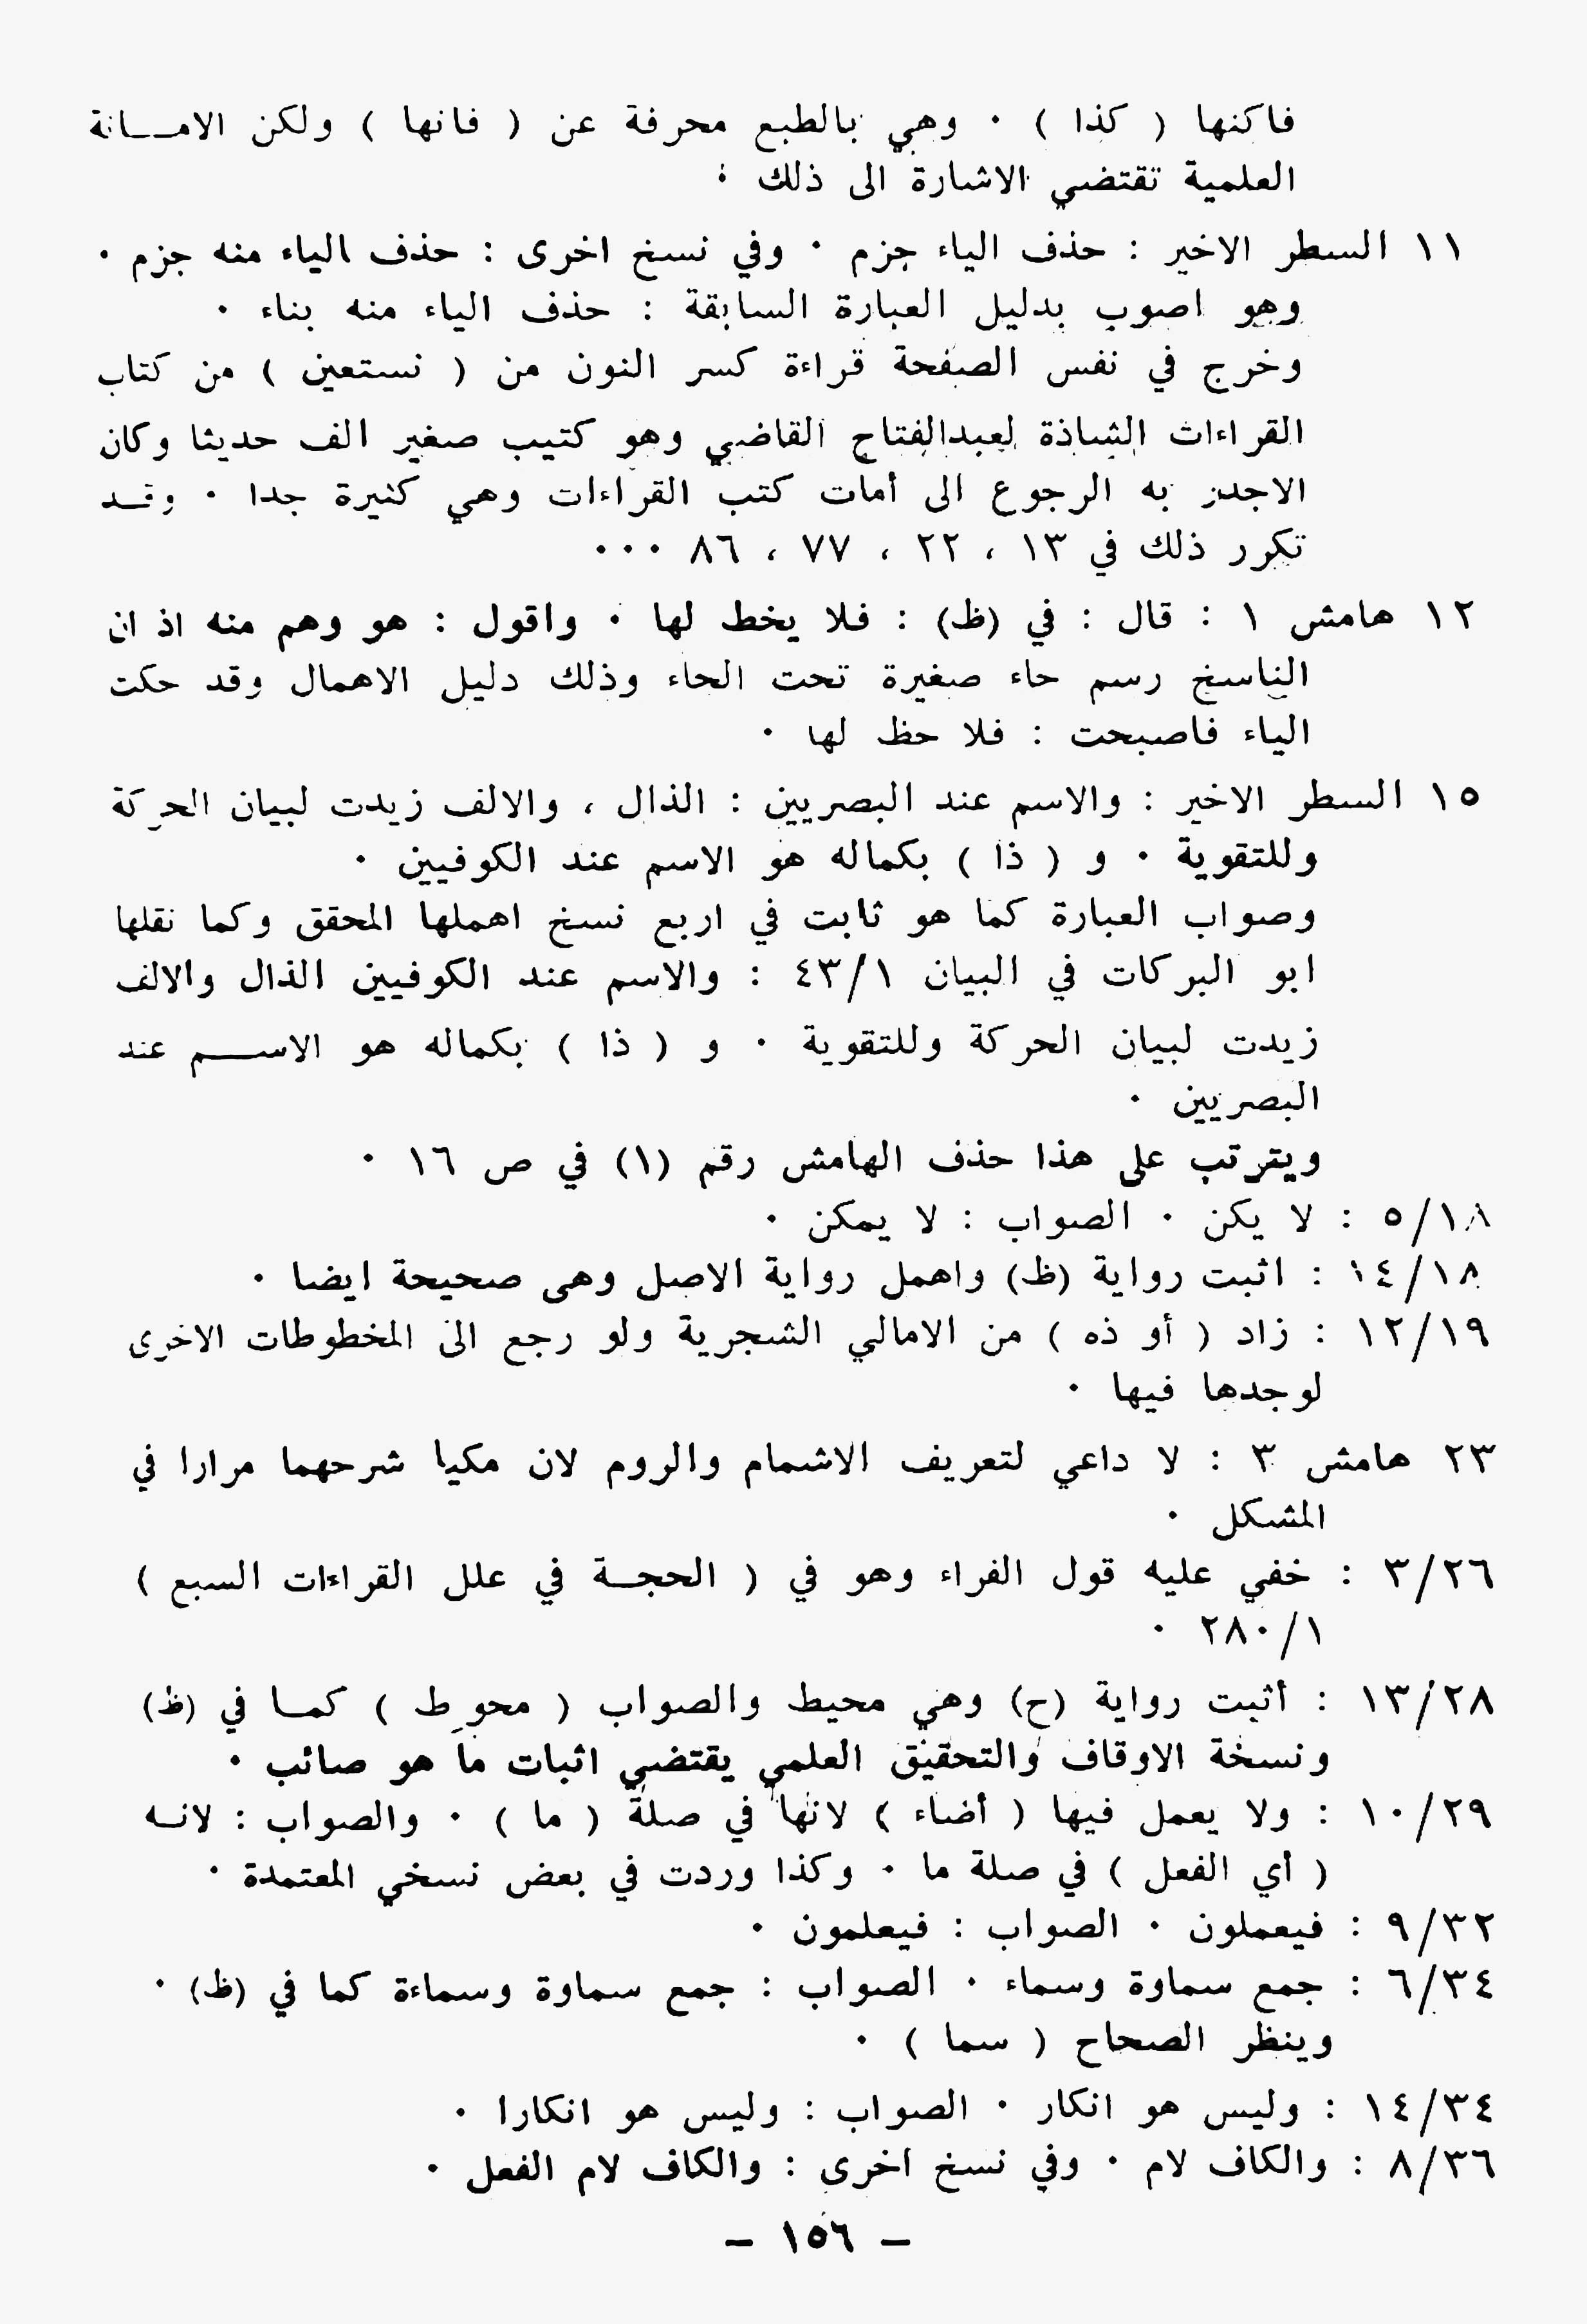 فاكنها ( كذا ) ٠ وهي بالطبع محرفة عن ( فانها ) ولكن الامـــانة
العلمية تقتضي الاشارة الى ذلك ؛
١١ السطر الاخير : حذف الياء جزم ٠ وفي نسخ اخرى : حذف الياء منه جزم ٠
وهو اصوب بدليل العبارة السابقة : حذف الياء منه بناء ٠
وخرج في نفس الصفحة قراءة كسر النون من ( نستعين ) من كتاب
القراءات الشاذة لعبدالفتاح القاضي وهو كتيب صغير الف حديثا وكان
الاجدر به الرجوع الى أمات كتب القراءات وهي كثيرة جدا ٠ وقــد
تكرر ذلك في ١٣ ، ٢٢ ، ٧٧ ، ٨٦ ٠٠٠
١٢ هامش ١ : قال : في (ظ) : فلا يخط لها ٠ واقول : هو وهم منه اذ ان
الناسخ رسم حاء صغيرة تحت الحاء وذلك دليل الاهمال وقد حكت
الياء فاصبحت : فلا حظ لها ٠
١٥ السطر الاخير : والاسم عند البصريين : الذال ، والالف زيدت لبيان الحركة
وللتقوية ٠ و ( ذا ) بكماله هو الاسم عند الكوفيين ٠
وصواب العبارة كما هو ثابت في اربع نسخ اهملها المحقق وكما نقلها
ابو البركات في البيان ٤٣/١ : والاسم عند الكوفيين الذال والالف
زيدت لبيان الحركة وللتقوية ٠ و ( ذا ) بكماله هو الاســـم عند
البصريين ٠
ويترتب على هذا حذف الهامش رقم (١) في ص ١٦ ٠
٥/١٨ : لا يكن ٠ الصواب : لا يمكن ٠
١٤/١٨ : اثبت رواية (ظ) واهمل رواية الاصل وهى صحيحة ايضا ٠
١٢/١٩ : زاد ( أو ذه ) من الامالي الشجرية ولو رجع الى المخطوطات الاخرى
لوجدها فيها ٠
٢٣ هامش ٣ : لا داعي لتعريف الاشمام والروم لان مكيا شرحهما مرارا في
المشكل ٠
٣/٢٦ : خفي عليه قول الفراء وهو في ( الحجــة في علل القراءات السبع )
٢٨٠/١ ٠
١٣/٢٨ : أثبت رواية (ح) وهي محيط والصواب ( محوِط ) كمــا في (ظ)
ونسخة الاوقاف والتحقيق العلمي يقتضي اثبات ما هو صائب ٠
١٠/٢٩ : ولا يعمل فيها ( أضاء ) لانها في صلة ( ما ) ٠ والصواب : لانــه
( أي الفعل ) في صلة ما ٠ وكذا وردت في بعض نسخي المعتمدة ٠
٩/٣٢ : فيعملون ٠ الصواب : فيعلمون ٠
٦/٣٤ : جمع سماوة وسماء ٠ الصواب : جمع سماوة وسماءة كما في (ظ) ٠
وينظر الصحاح ( سما ) ٠
١٤/٣٤ : وليس هو انكار ٠ الصواب : وليس هو انكارا ٠
٨/٣٦ : والكاف لام ٠ وفي نسخ اخرى : والكاف لام الفعل ٠
– ١٥٦ –